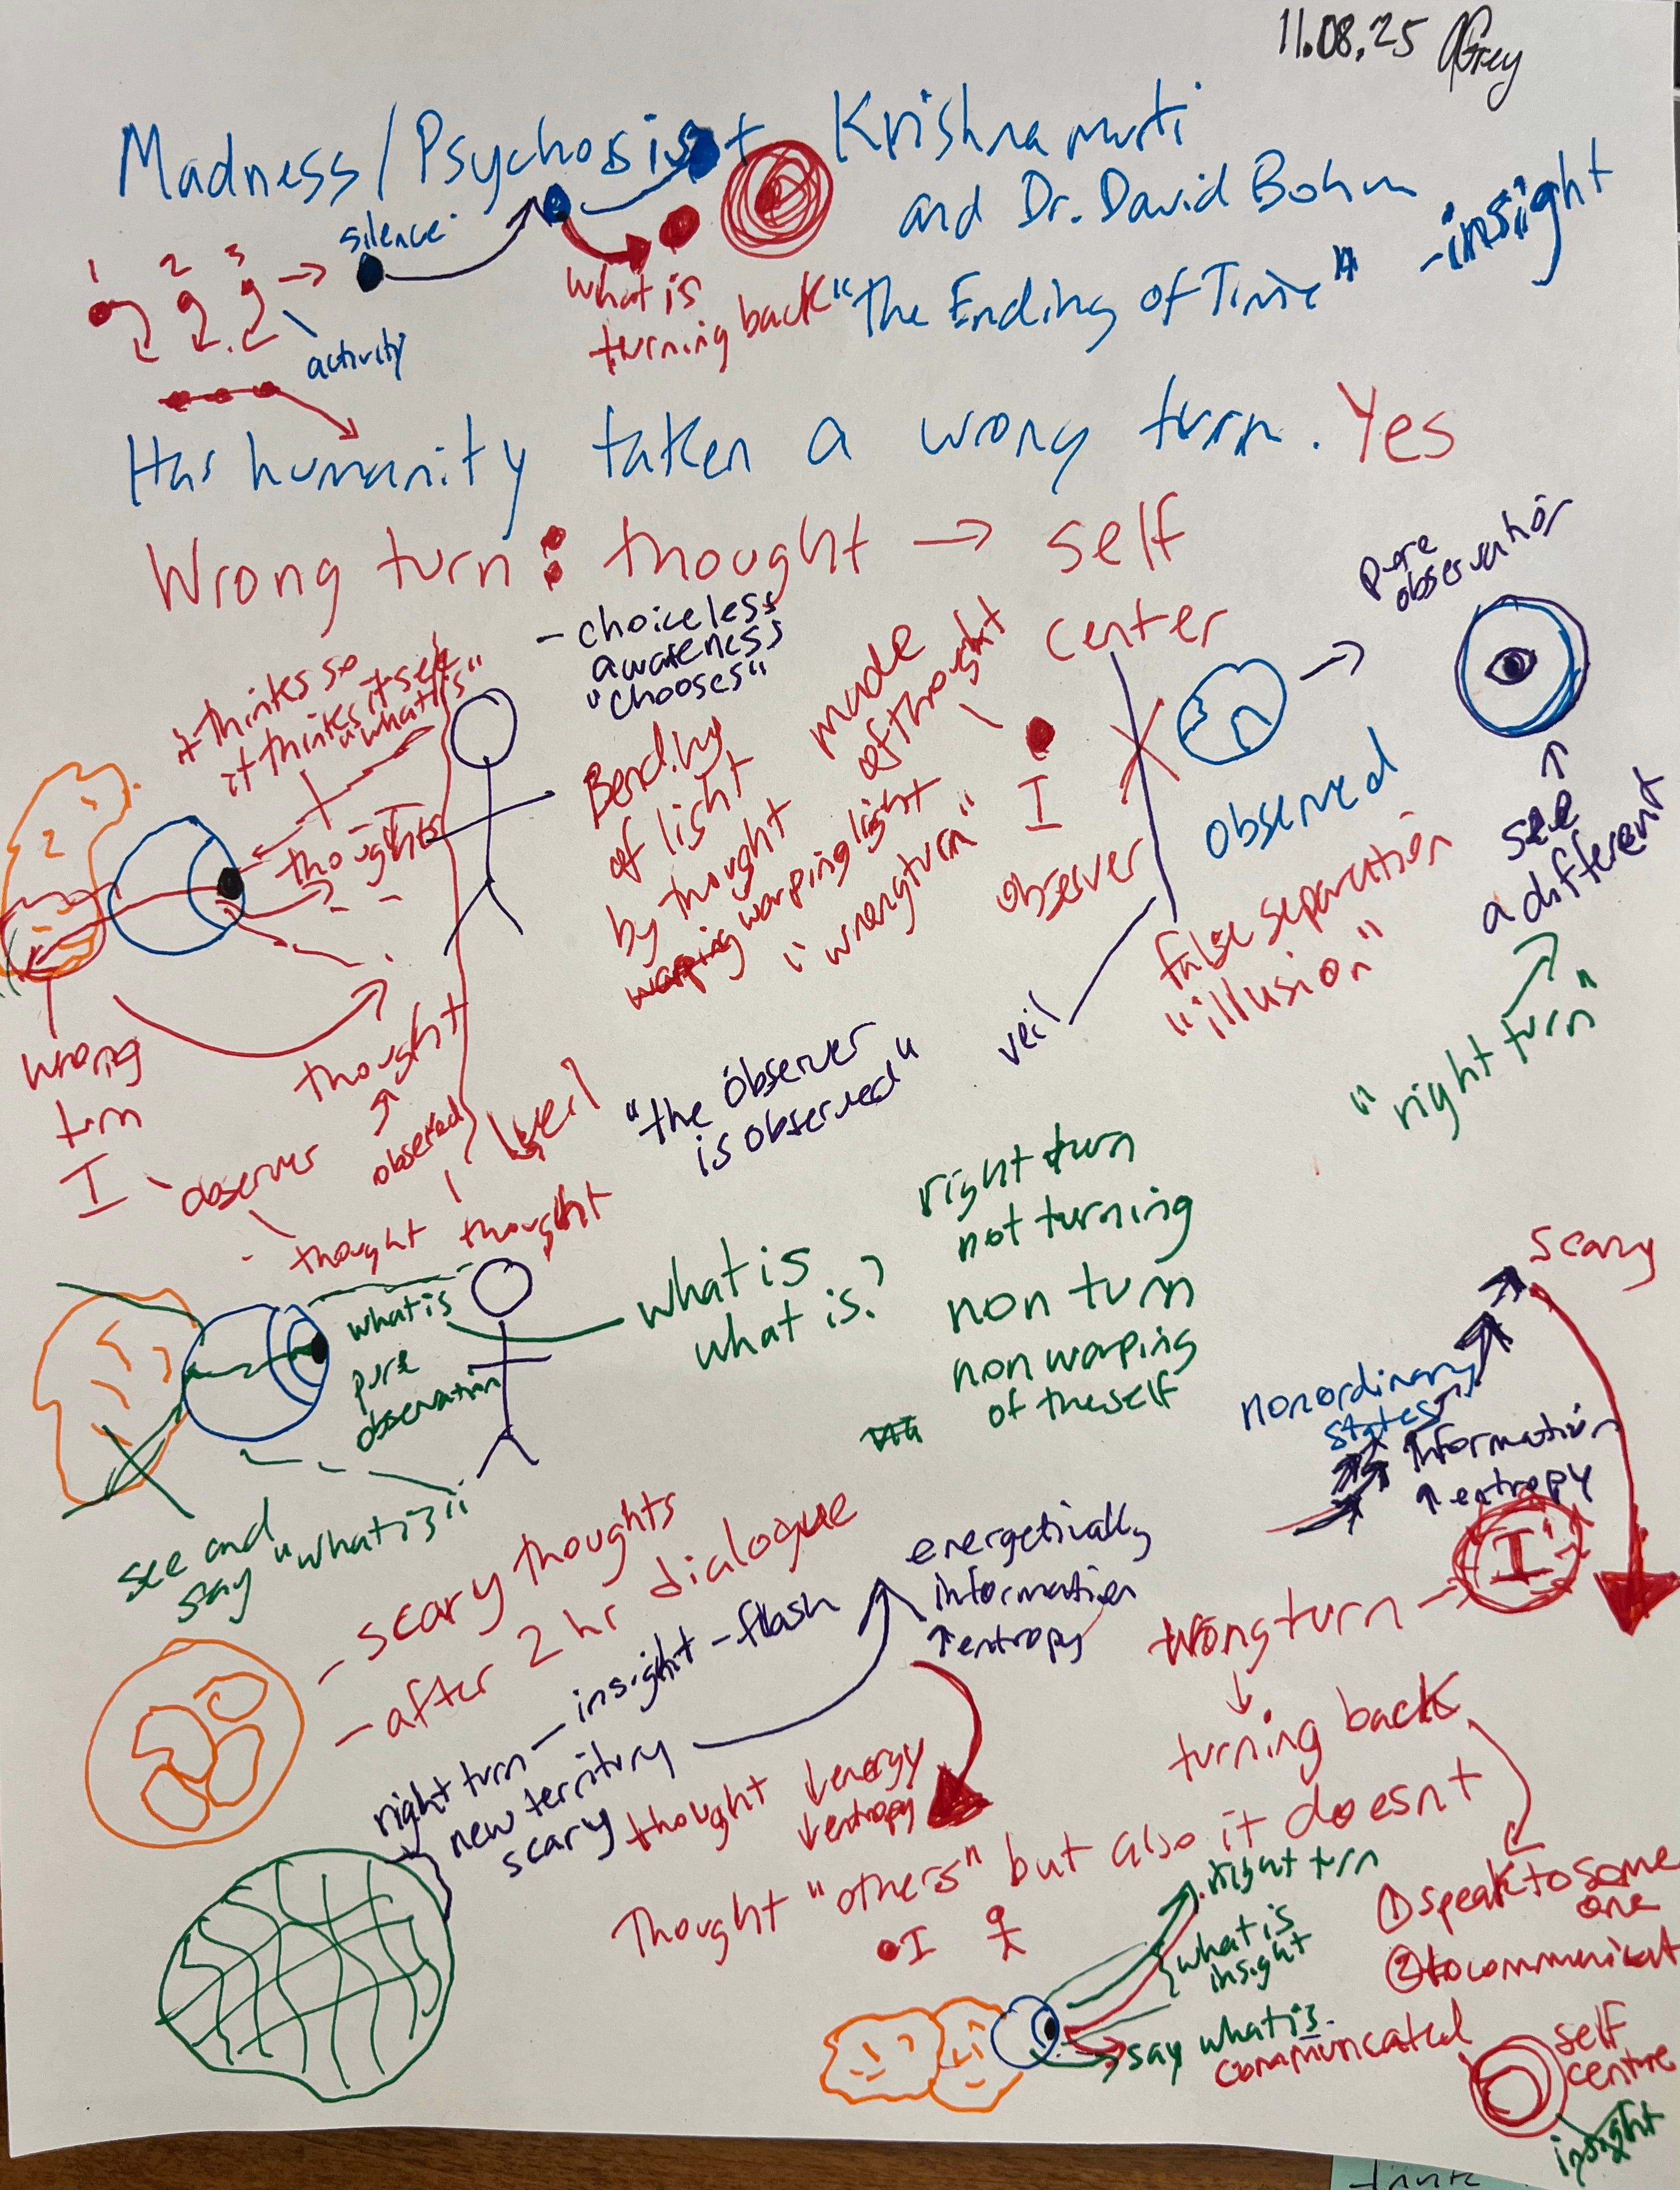 11.08.25 Grey
Madness/Psychosis + Krishnamurti
and Dr. David Bohm
-insight
"the Ending of Time"
1 2 3
silence
activity
what is
turning back
Has humanity taken a wrong turn. Yes
Wrong turn: thought → self
center
- choiceless
awareness
"chooses"
pure
observation
it thinks so
it thinks itself
"what is"
thoughts
I
Bending
of light
by thought
warping
warping light
made
of thought
"wrong turn"
I
observer
observed
see
a different
"right turn"
false separation
"illusion"
veil
"the observer
is observed"
wrong
turn
I - observer
thought
observed
veil
thought thought
what is
pure
observation
what is
what is?
right turn
not turning
non turn
non warping
of the self
see and
say "what is"
scary
nonordinary
states
↑ information
↑ entropy
I
wrong turn →
turning back
- scary thoughts
- after 2 hr dialogue
right turn - insight - flash
new territory
scary
energetically
information
↑ entropy
thought ↓ energy
↓ entropy
Thought "others" but also it doesnt
I
right turn
what is
insight
say what is.
communicated
① speak to some
one
② to communicat
self
centre
insight